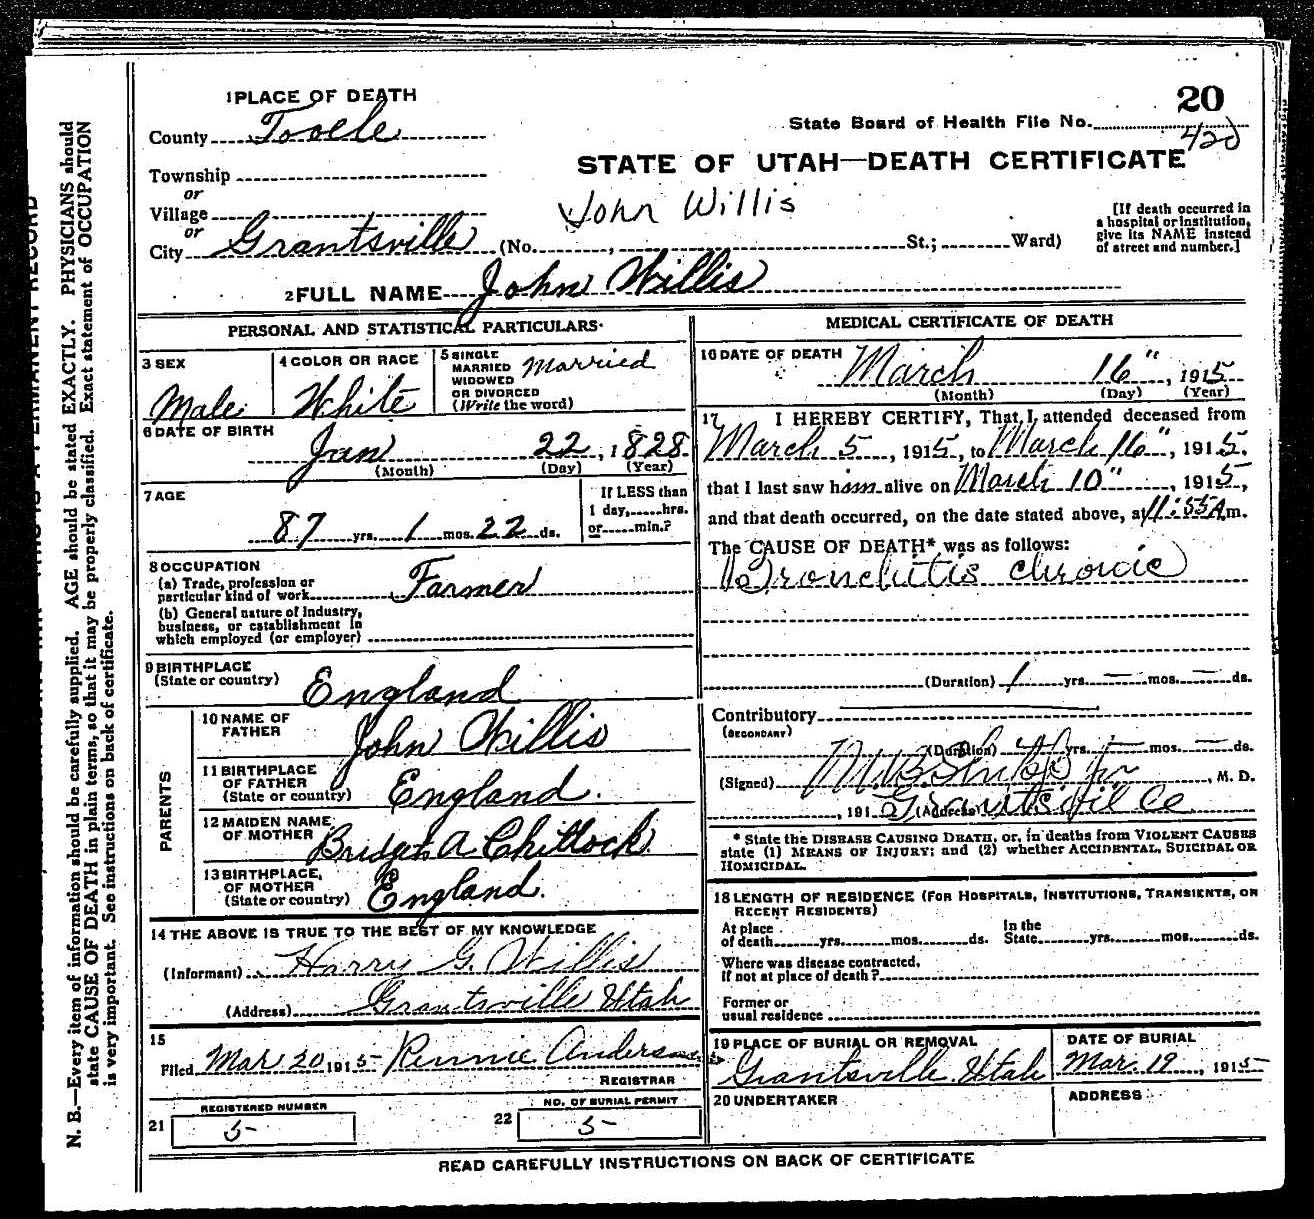 1 PLACE OF DEATH
20
County Tooele
State Board of Health File No. 420
Township
STATE OF UTAH—DEATH CERTIFICATE
or
Village
John Willis
or
City Grantsville (No. , St.; Ward)
[If death occurred in
a hospital or institution,
give its NAME instead
of street and number.]
2 FULL NAME John Willis
PERSONAL AND STATISTICAL PARTICULARS.
3 SEX
Male
4 COLOR OR RACE
White
5 SINGLE
MARRIED
WIDOWED
OR DIVORCED
(Write the word)
Married
6 DATE OF BIRTH
Jan 22, 1828
(Month) (Day) (Year)
7 AGE
87 yrs. 1 mos. 22 ds.
If LESS than
1 day, hrs.
or min.?
8 OCCUPATION
(a) Trade, profession or
particular kind of work Farmer
(b) General nature of industry,
business, or establishment in
which employed (or employer)
9 BIRTHPLACE
(State or country) England
PARENTS
10 NAME OF
FATHER John Willis
11 BIRTHPLACE
OF FATHER
(State or country) England.
12 MAIDEN NAME
OF MOTHER A Chitlock.
13 BIRTHPLACE,
OF MOTHER
(State or country) England.
14 THE ABOVE IS TRUE TO THE BEST OF MY KNOWLEDGE
(Informant) Harry G. Willis
(Address) Grantsville Utah
15
Filed Mar 20 1915 Anderson
REGISTRAR
REGISTERED NUMBER
21 5
NO. OF BURIAL PERMIT
22 5
MEDICAL CERTIFICATE OF DEATH
16 DATE OF DEATH
March 16", 1915
(Month) (Day) (Year)
17 I HEREBY CERTIFY, That I attended deceased from
March 5, 1915, to March 16", 1915.
that I last saw him alive on March 10", 1915,
and that death occurred, on the date stated above, at 11:55 A.m.
The CAUSE OF DEATH* was as follows:
Bronchitis chronic
(Duration) 1 yrs. — mos. — ds.
Contributory
(SECONDARY)
(Duration) yrs. — mos. — ds.
(Signed) , M. D.
, 1915 (Address) Grantsville
* State the DISEASE CAUSING DEATH, or, in deaths from VIOLENT CAUSES
state (1) MEANS OF INJURY; and (2) whether ACCIDENTAL, SUICIDAL OR
HOMICIDAL.
18 LENGTH OF RESIDENCE (FOR HOSPITALS, INSTITUTIONS, TRANSIENTS, OR
RECENT RESIDENTS)
At place
of death yrs. mos. ds.
In the
State yrs. mos. ds.
Where was disease contracted,
if not at place of death?
Former or
usual residence
19 PLACE OF BURIAL OR REMOVAL
Grantsville Utah
DATE OF BURIAL
Mar. 19, 1915
20 UNDERTAKER
ADDRESS
READ CAREFULLY INSTRUCTIONS ON BACK OF CERTIFICATE
N. B.—Every item of information should be carefully supplied. AGE should be stated EXACTLY. PHYSICIANS should
state CAUSE OF DEATH in plain terms, so that it may be properly classified. Exact statement of OCCUPATION
is very important. See instructions on back of certificate.
PERMANENT RECORD